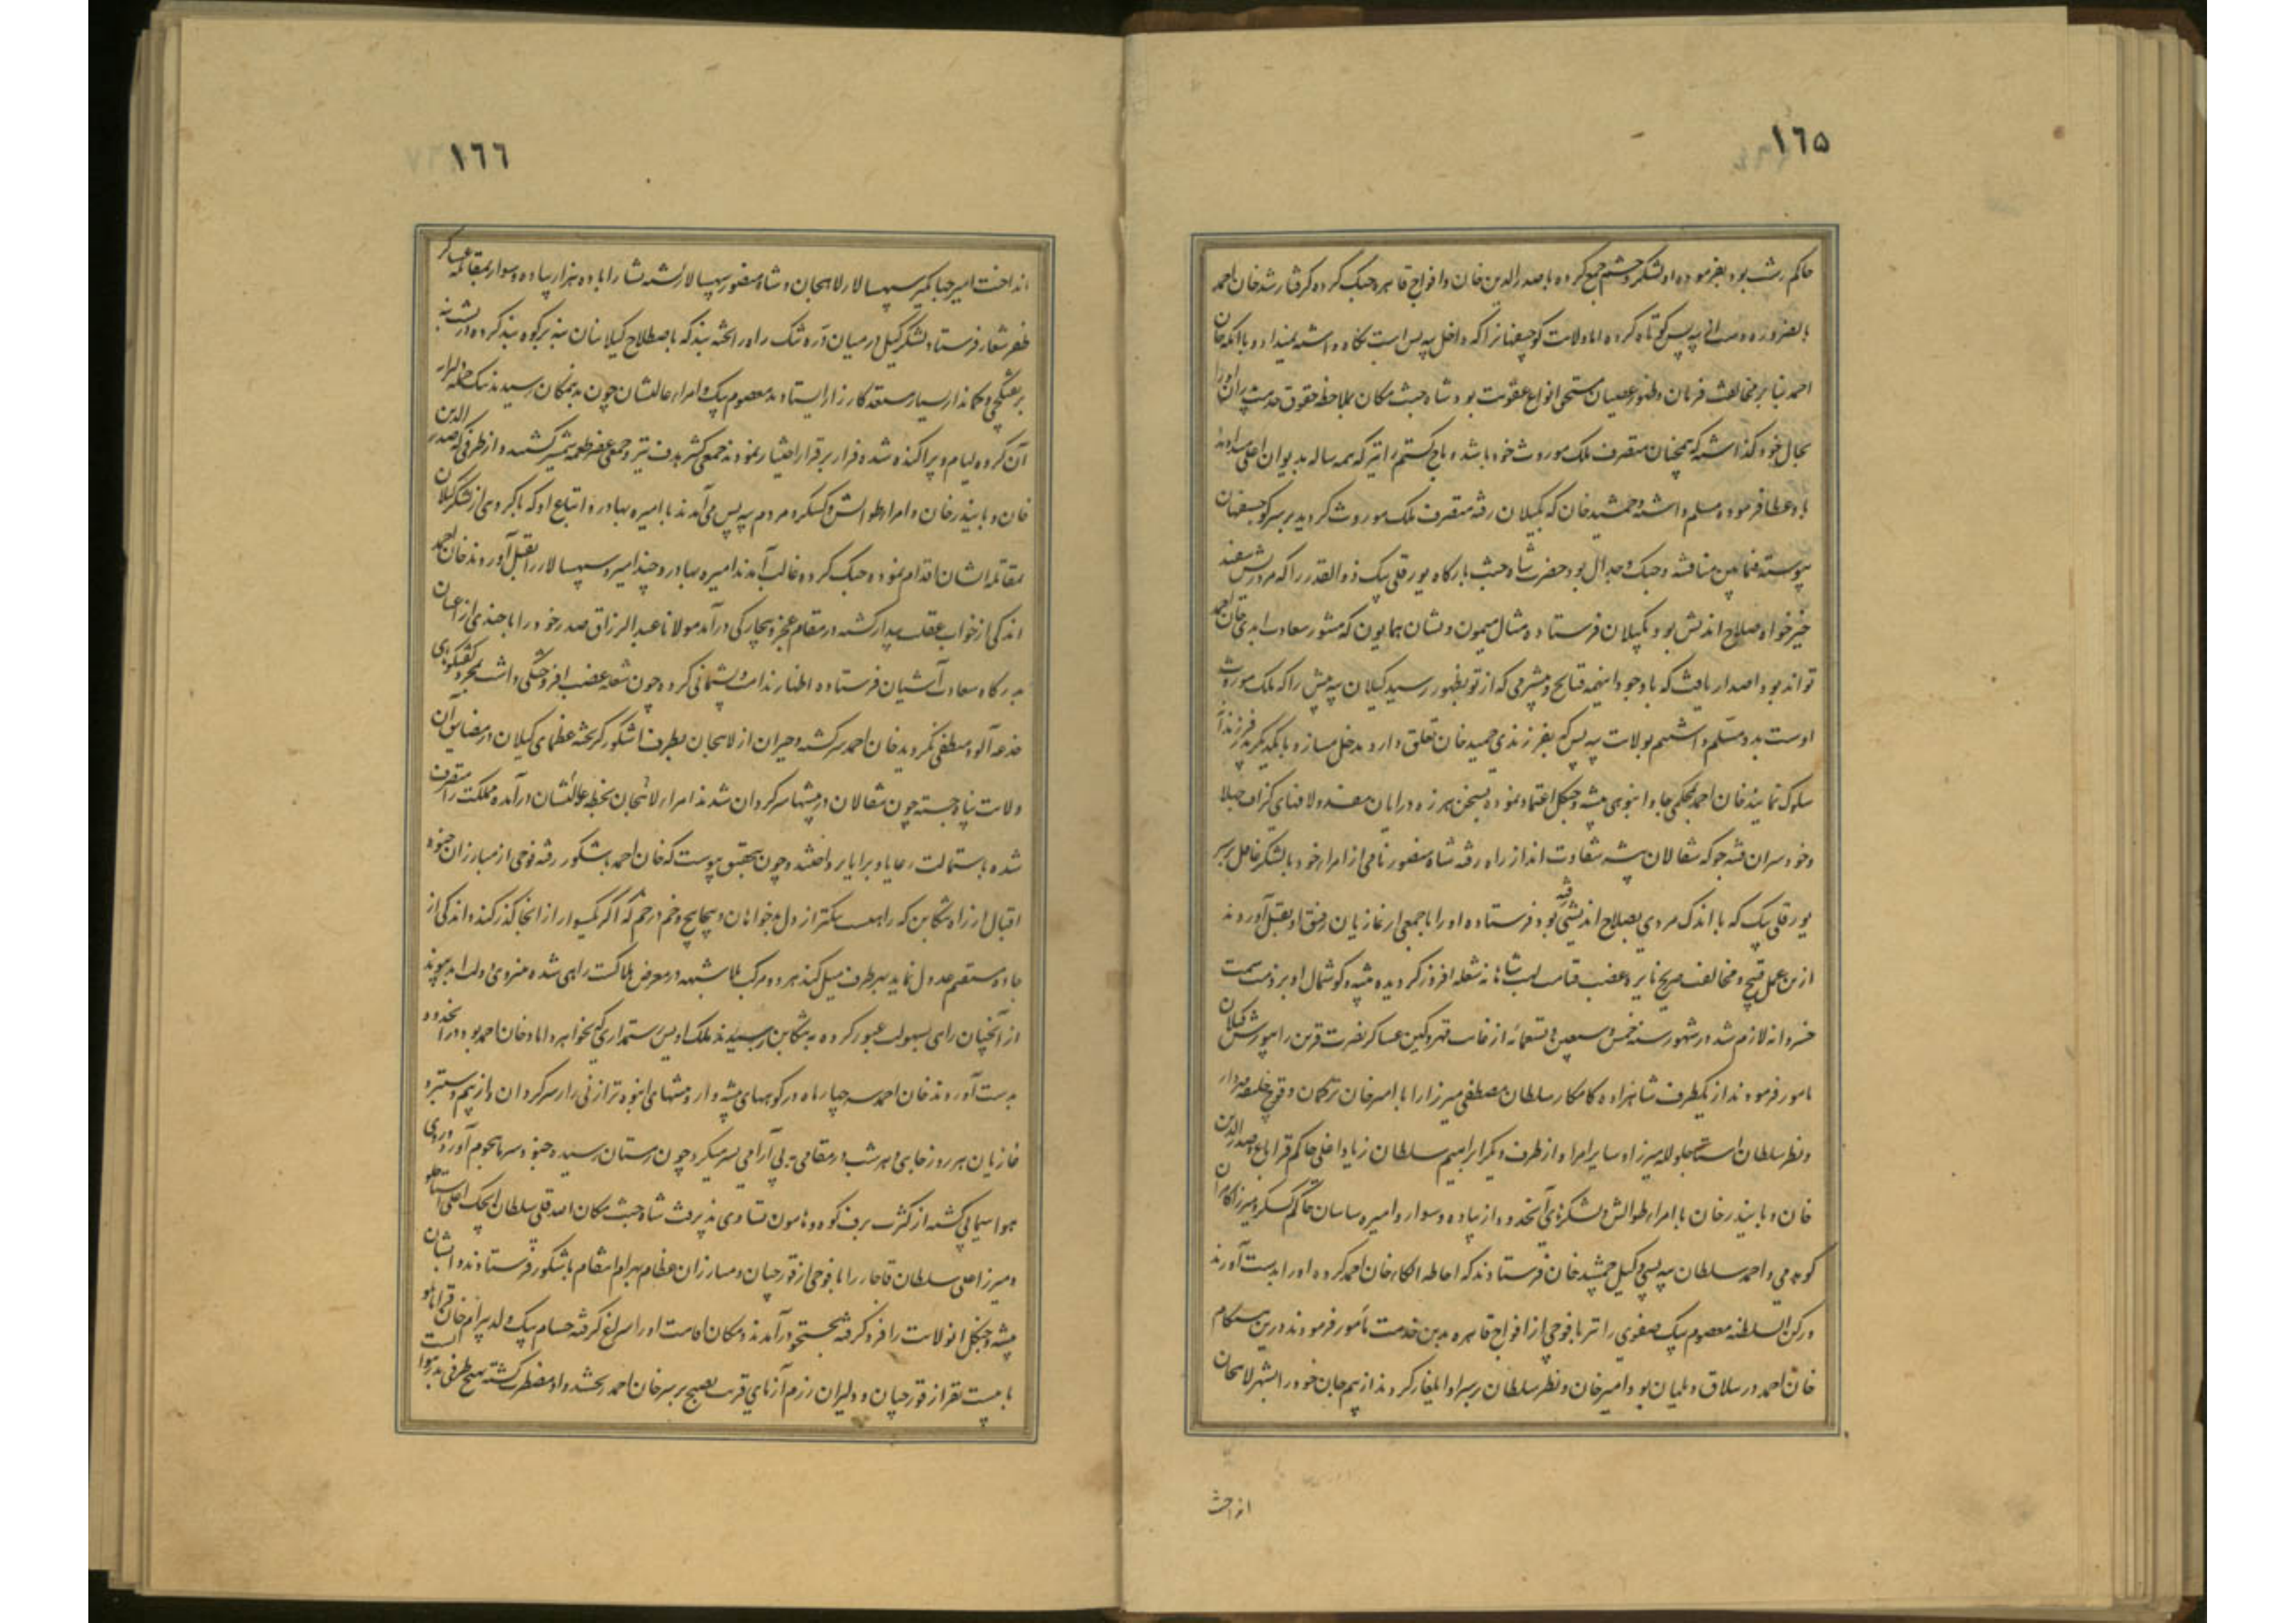 ١٦٥
حاکم رشت بود بفرموده او لشکر و حشم جمع کرده با صدرالدین خان و افواج قاهره جنک کرده کرفتار شد خان احمد
بالضروره دست از بیه پس کوتاه کرده اما ولایت کوچسفانرا که داخل بیه پس است نکاه داشته نمیداد و با آنکه خان
احمد بنا بر مخالفت فرمان و ظهور عصیان مستحق انواع عقوبت بود شاه جنت مکان بملاحظه حقوق خدمت پدران او را
بحال خود کذاشته که همچنان متصرف ملک موروث خود باشد و باج کستم را نیز که همه ساله بدیوان اعلی میدادند
باو عطا فرموده مسلم داشته و جمشید خان که بکیلان رفته متصرف ملک موروث کردید بر سر کوچسفهان
پیوسته فیمابین مناقشه و جنک و جدال بود حضرت شاه جنت بارکاه یولقلی بیک ذوالقدر را که مرد ریش سفید
خیرخواه صلاح اندیش بود بکیلان فرستاده مثال میمون و نشان همایون که منشور سعادت ابدی خان احمد
تواند بود اصدار یافت که با وجود اینهمه قبایح و بیشرمی که از تو بظهور رسید کیلان بیه پیش را که ملک موروث
اوست بدو مسلم داشتیم بولایت بیه پس که بفرزندی جمشید خان تعلق دارد مدخل نسازد و با یکدیکر پدر فرزندانه
سلوک نمایند خان احمد بمحکمی جا و انبوهی بیشه و جنکل اعتماد نموده بسخن هرزه درایان مفسد و لافهای کزاف جهلا
و خودسران فتنه جو که شغالان بیشه شقاوت اند از راه رفته شاه منصور نامی از امراء خود با لشکر غافل بر سر
یولقلی بیک که با اندک مردمی بصلاح اندیشی رفته بود فرستاده او را با جمعی از غازیان رفیق او بقتل آوردند
ازین عمل قبیح و مخالفت صریح نایره غضب قیامت لهب شاهانه شعله افروز کردیده تنبیه و کوشمال او بر ذمت همت
خسروانه لازم شد در شهور سنه خمس و سبعین و تسعمائه از غایت قهر و کین عساکر نصرت قرین را بیورش کیلان
مامور فرمودند از یکطرف شاهزاده کامکار سلطان مصطفی میرزا را با امیرخان ترکمان و قوچ خلیفه مهردار
و نظر سلطان استاجلو لله میرزا و سایر امرا و از طرف دیکر ابراهیم سلطان زیاد اغلی حاکم قراباغ و صدرالدین
خان و بایندر خان با امراء طوالش و لشکرهای آنحدود از پیاده و سوار و امیره ساسان حاکم کسکر و میرزا کامران
کوهدمی و احمد سلطان بیه پسی وکیل جمشید خان فرستادند که احاطه الکاء خان احمد کرده او را بدست آورند
و رکن السلطنه معصوم بیک صفوی را نیز با فوجی از افواج قاهره بدین خدمت مأمور فرمودند درین هنکام
خان احمد در ییلاق دیلمان بود امیرخان و نظر سلطان بر سر او ایلغار کردند از بیم جان خود را بشهر لاهجان
انداخت
١٦٦
انداخت امیر جهانکیر سپهسالار لاهجان و شاه منصور سپهسالار لشته نشا را با ده هزار پیاده و سوار بمقابله عساکر
ظفر شعار فرستاد لشکر کیل در میان دره تنک راه را بخته بند که باصطلاح کیلانیان بنه بر کوه بند کرده در پشت بنه
تفنکچی و کماندار بسیار مستعد کارزار ایستادند معصوم بیک و امراء عالیشان چون بدانمکان رسیدند بیک حمله دلیرانه
آن کروه لیام ویر پراکنده شده فرار بر قرار اختیار نمودند جمعی کثیر هدف تیر و جمعی غفیر طعمه شمشیر کشتند و از طرفی که صدرالدین
خان و بایندر خان و امراء طوالش و کسکر و مردم بیه پس می آمدند با امیره بهادر و اتباع او که با کروهی از لشکر کیلان
بمقابله ایشان اقدام نموده جنک کرده غالب آمدند امیره بهادر و چند امیر و سپهسالار را بقتل آوردند خان احمد
اندکی از خواب غفلت بیدار کشته در مقام عجز و بیچارکی درآمد مولانا عبدالرزاق صدر خود را با چندی از اعیان
بدرکاه سعادت آشیان فرستاده اظهار ندامت و پشیمانی کرده چون شعله غضب افروختکی داشت بمجرد کفتکوی
خدعه آلود منطفی نکردید خان احمد سرکشته و حیران از لاهجان بطرف اشکور کریخته عظمای کیلان در مضایق آن
ولایت پناه جسته چون شغالان در بیشها سرکردان شدند امراء لاهجان بخطه عالیشان درآمده مملکت را متصرف
شده باستمالت رعایا و برایا پرداختند و چون بتحقیق پیوست که خان احمد باشکور رفته فوجی از مبارزان جنود
اقبال از راه تنکابن که راهیست تنکتر از دل بدخواهان و پیچاپیچ و خم در خم که اکر یکسوار از آنجا کذر کند و اندکی از
جاده مستقیم عدول نماید بهر طرف میل کند هر دو مرکب بلا شبهه در معرض هلاکت راهی شده منزوی دولت ابد پیوند
از آنچنان راهی بسهولت عبور کرده به تنکابن رسیدند ملک اویس رستمداری که خواهر و داماد خان احمد بود در آنحدود
بدست آوردند خان احمد سه چهار ماه در کوههای بیشه دار و بیشهای انبوه تر از نی زار سرکردان و از بیم دستبرد
غازیان هر روز جایی و هر شب در مقامی به بی آرامی بسر میکرد چون زمستان رسیده جنود سرما هجوم آورد و روی
هوا سیمابی کشته از کثرت برف کوه و هامون تساوی پذیرفت شاه جنت مکان اصدقلی سلطان ایجک اغلی استاجلو
و میرزا علی سلطان قاجار را با فوجی از قورچیان و مبارزان عظام بهرام انتقام باشکور فرستادند و ایشان
بیشه و جنکل انولایت را فرو کرفته بجستجو درآمدند و مکان اقامت او را سراغ کرفته حسام بیک ولد بیرام خان قرامانلو
با بیست نفر از قورچیان و دلیران رزم آزمای قریب بصبح بر سر خان احمد ریختند و او مضطرب کشته بهیچ طرفی بدر نتوانست